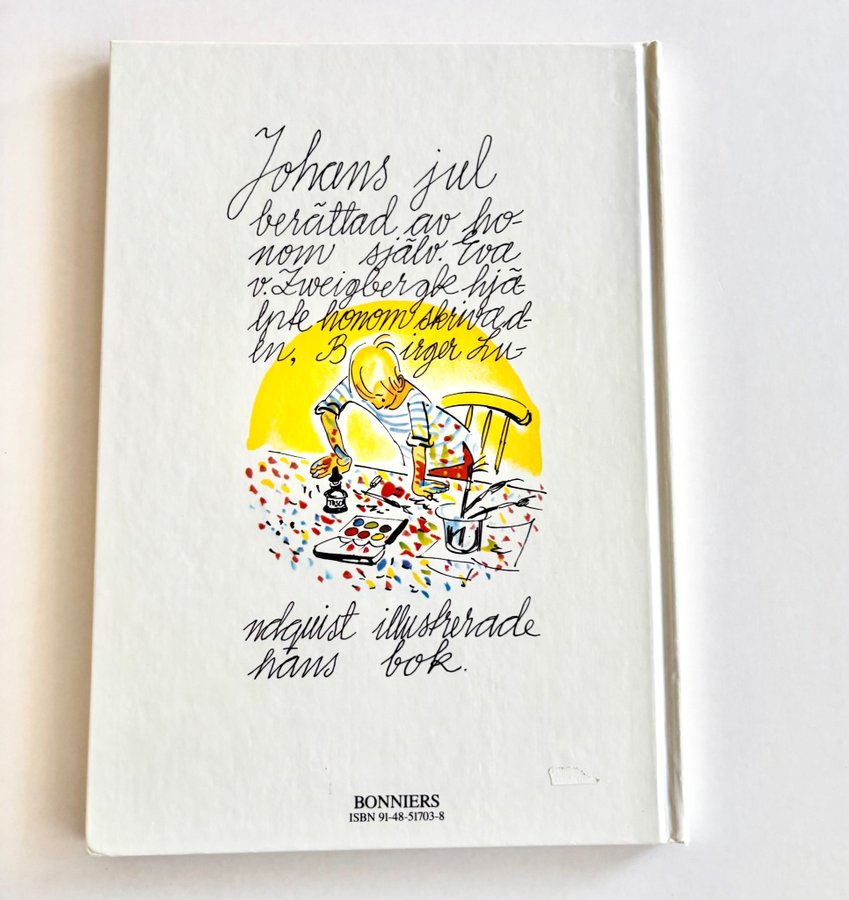 Johans jul
berättad av ho-
nom själv. Eva
v. Zweigbergk hjä-
lpte honom skriva d-
en, Birger Lu-
TUSCH
ndquist illustrerade
hans bok.
BONNIERS
ISBN 91-48-51703-8